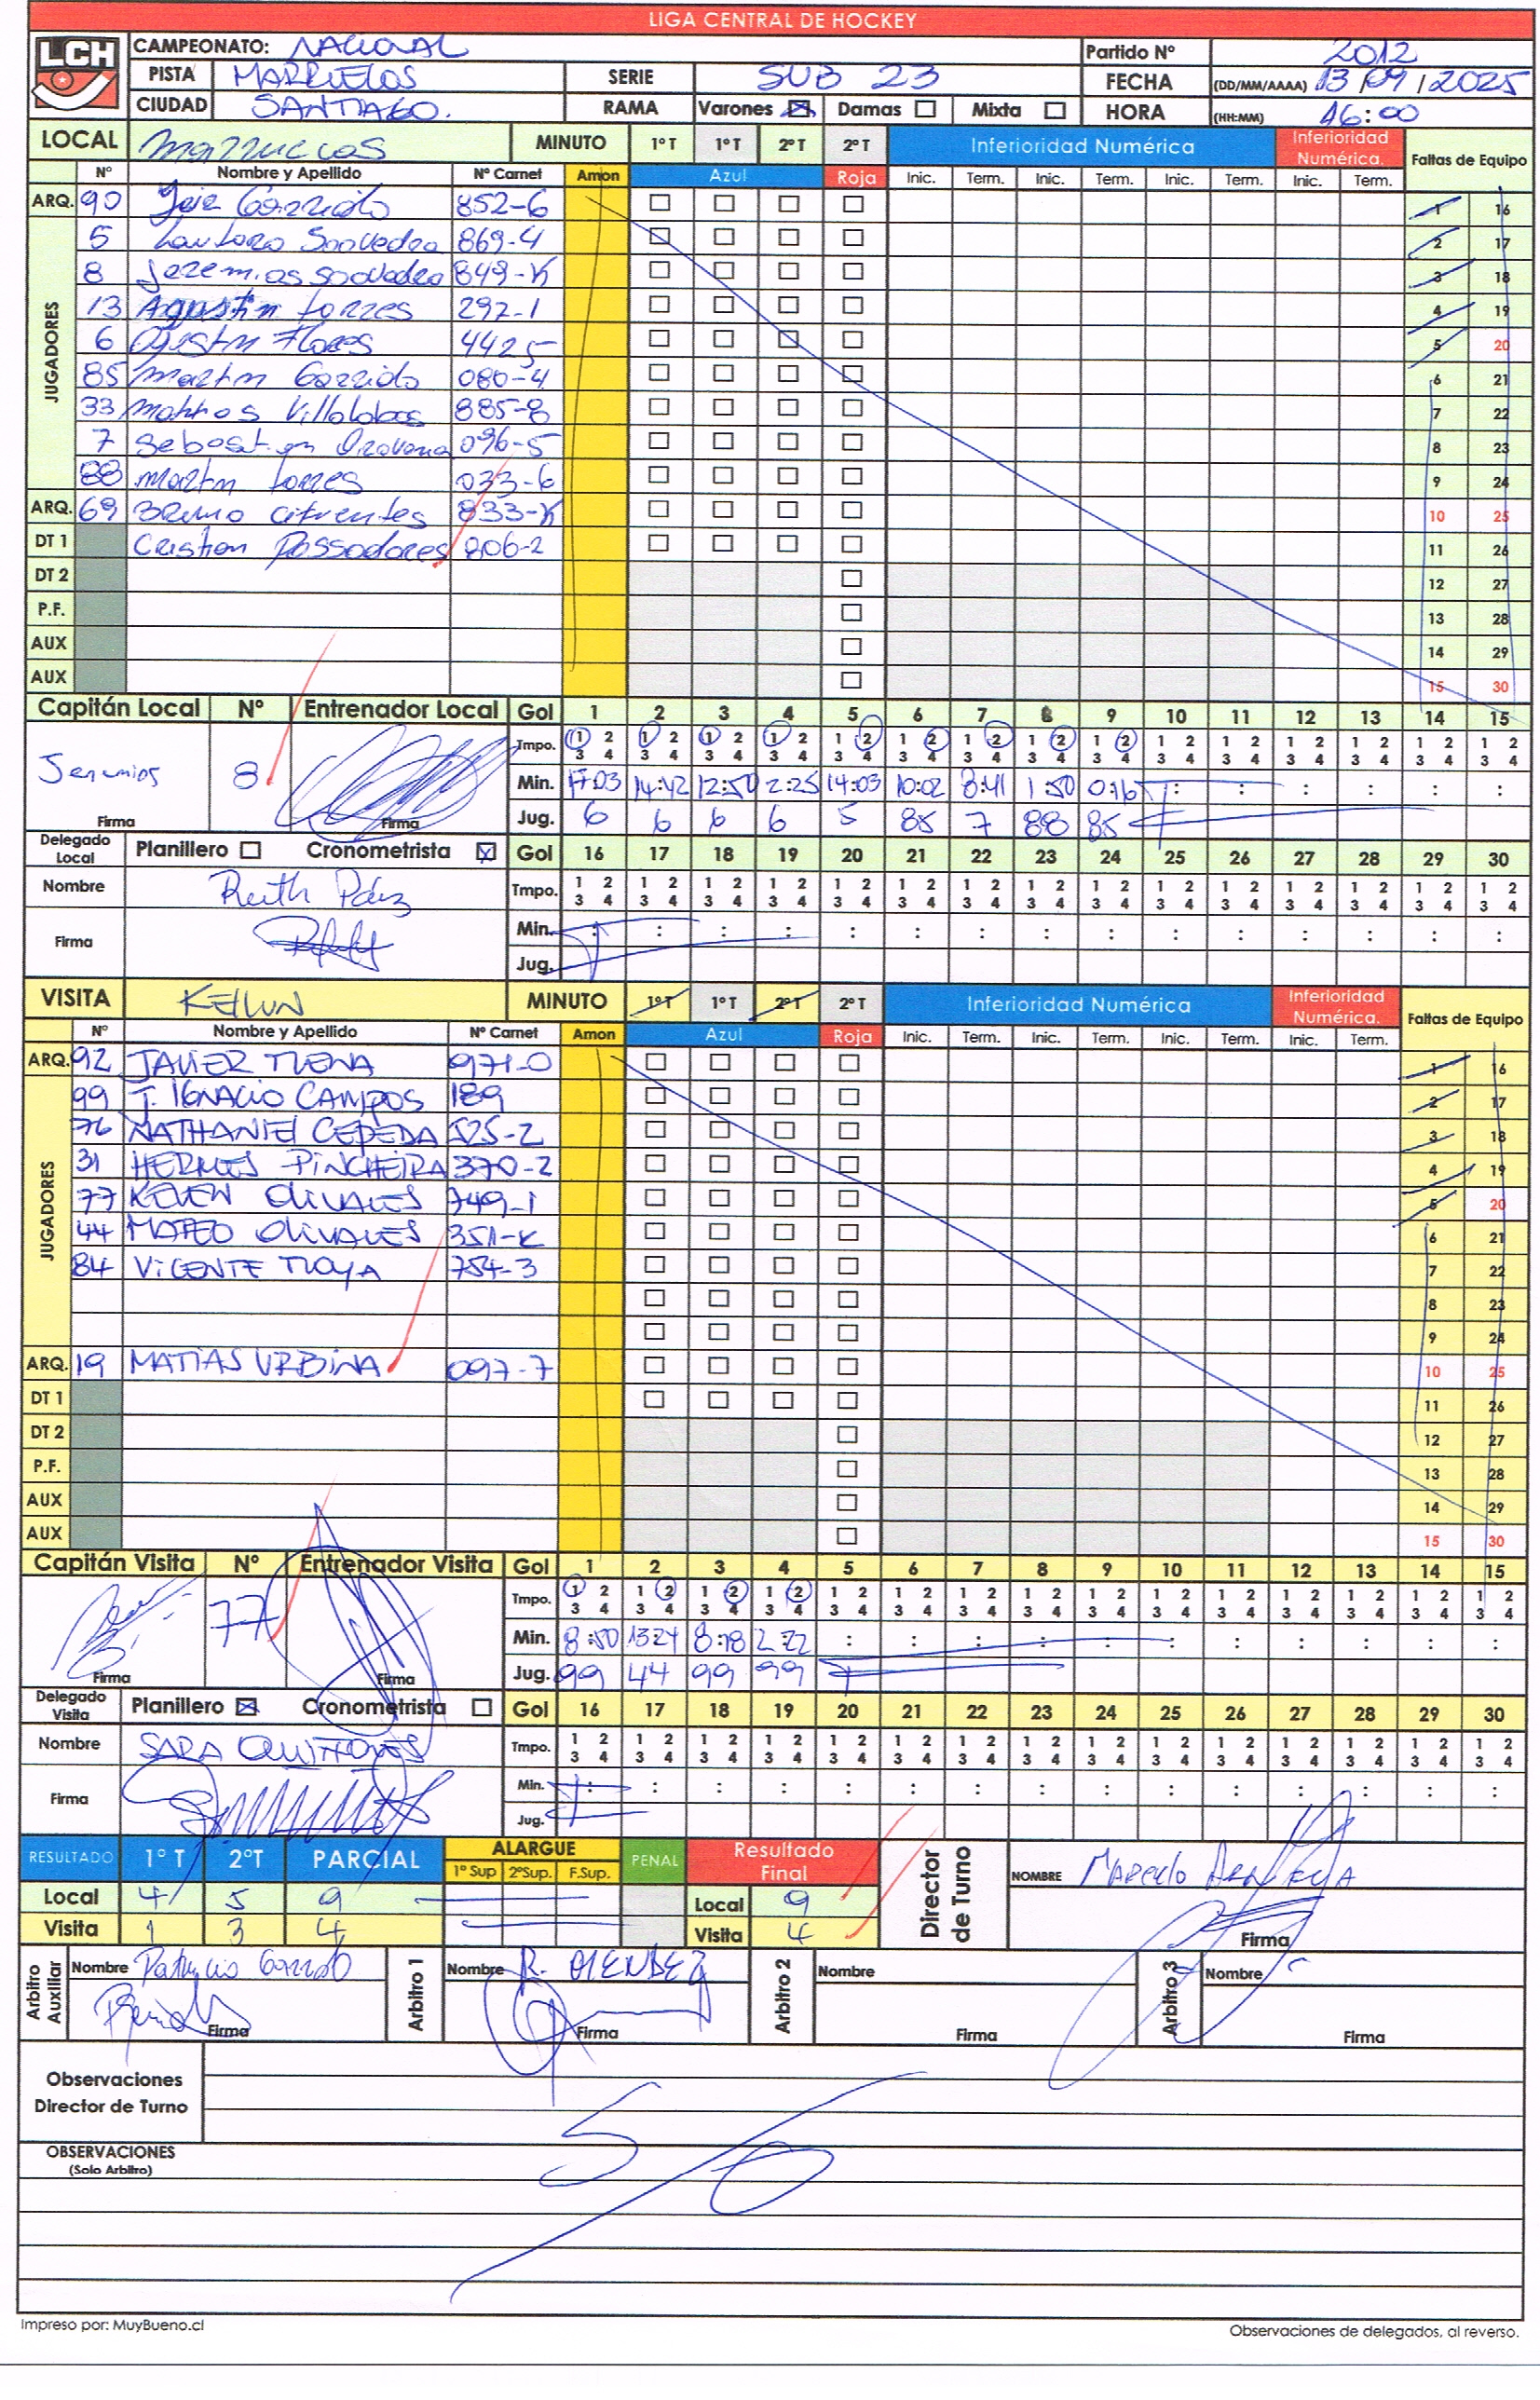 LIGA CENTRAL DE HOCKEY
LCH CAMPEONATO: NACIONAL Partido Nº 2012
PISTA MARRUECOS SERIE SUB 23 FECHA (DD/MM/AAAA) 13/09/2025
CIUDAD SANTIAGO. RAMA Varones ☒ Damas ☐ Mixta ☐ HORA (HH:MM) 16:00
LOCAL Marruecos MINUTO 1º T 1º T 2º T 2º T Inferioridad Numérica Inferioridad Numérica. Faltas de Equipo
Nº Nombre y Apellido Nº Carnet Amon Azul Roja Inic. Term. Inic. Term. Inic. Term. Inic. Term.
ARQ. 90 Garrido 852-6 ☐ ☐ ☐ ☐ 1 16
JUGADORES
5 Lautaro Saavedra 869-4 ☐ ☐ ☐ ☐ 2 17
8 Jeremias Saavedra 849-K ☐ ☐ ☐ ☐ 3 18
13 Agustin Torres 297-1 ☐ ☐ ☐ ☐ 4 19
6 Agustin Flores 4425 ☐ ☐ ☐ ☐ 5 20
85 Martin Garrido 080-4 ☐ ☐ ☐ ☐ 6 21
33 Matias Villalobos 885-8 ☐ ☐ ☐ ☐ 7 22
7 Sebastian 096-5 ☐ ☐ ☐ ☐ 8 23
88 Martin Torres 033-6 ☐ ☐ ☐ ☐ 9 24
ARQ. 69 Bruno Cifuentes 833-K ☐ ☐ ☐ ☐ 10 25
DT 1 Cristian Passadores 806-2 ☐ ☐ ☐ ☐ 11 26
DT 2 ☐ 12 27
P.F. ☐ 13 28
AUX ☐ 14 29
AUX ☐ 15 30
Capitán Local Nº Entrenador Local Gol 1 2 3 4 5 6 7 8 9 10 11 12 13 14 15
Tmpo. 1 2 1 2 1 2 1 2 1 2 1 2 1 2 1 2 1 2 1 2 1 2 1 2 1 2 1 2 1 2
3 4 3 4 3 4 3 4 3 4 3 4 3 4 3 4 3 4 3 4 3 4 3 4 3 4 3 4 3 4
Jeremias 8 Min. 17:03 14:42 12:50 2:25 14:03 10:02 8:41 1:50 0:16 : : : : : :
Firma Firma Jug. 6 6 6 6 5 85 7 88 85
Delegado Local Planillero ☐ Cronometrista ☒ Gol 16 17 18 19 20 21 22 23 24 25 26 27 28 29 30
Nombre Ruth Páez Tmpo. 1 2 1 2 1 2 1 2 1 2 1 2 1 2 1 2 1 2 1 2 1 2 1 2 1 2 1 2 1 2
3 4 3 4 3 4 3 4 3 4 3 4 3 4 3 4 3 4 3 4 3 4 3 4 3 4 3 4 3 4
Firma Min. : : : : : : : : : : : : : : :
Jug.
VISITA KEILUN MINUTO 1º T 1º T 2º T 2º T Inferioridad Numérica Inferioridad Numérica. Faltas de Equipo
Nº Nombre y Apellido Nº Carnet Amon Azul Roja Inic. Term. Inic. Term. Inic. Term. Inic. Term.
ARQ. 92 JAVIER TUENA 971-0 ☐ ☐ ☐ ☐ 1 16
JUGADORES
99 J. IGNACIO CAMPOS 189 ☐ ☐ ☐ ☐ 2 17
76 NATHANIEL CEPEDA 525-2 ☐ ☐ ☐ ☐ 3 18
31 HERMES PINCHEIRA 370-2 ☐ ☐ ☐ ☐ 4 19
77 KEVEN OLIVARES 749-1 ☐ ☐ ☐ ☐ 5 20
44 MATEO OLIVARES 351-K ☐ ☐ ☐ ☐ 6 21
84 VICENTE MOYA 754-3 ☐ ☐ ☐ ☐ 7 22
☐ ☐ ☐ ☐ 8 23
☐ ☐ ☐ ☐ 9 24
ARQ. 19 MATIAS URBINA 097-7 ☐ ☐ ☐ ☐ 10 25
DT 1 ☐ ☐ ☐ ☐ 11 26
DT 2 ☐ 12 27
P.F. ☐ 13 28
AUX ☐ 14 29
AUX ☐ 15 30
Capitán Visita Nº Entrenador Visita Gol 1 2 3 4 5 6 7 8 9 10 11 12 13 14 15
Tmpo. 1 2 1 2 1 2 1 2 1 2 1 2 1 2 1 2 1 2 1 2 1 2 1 2 1 2 1 2 1 2
3 4 3 4 3 4 3 4 3 4 3 4 3 4 3 4 3 4 3 4 3 4 3 4 3 4 3 4 3 4
77 Min. 8:50 13:24 8:18 2:22 : : : : : : : : : : :
Firma Firma Jug. 99 44 99 99
Delegado Visita Planillero ☒ Cronometrista ☐ Gol 16 17 18 19 20 21 22 23 24 25 26 27 28 29 30
Nombre SARA QUIÑONES Tmpo. 1 2 1 2 1 2 1 2 1 2 1 2 1 2 1 2 1 2 1 2 1 2 1 2 1 2 1 2 1 2
3 4 3 4 3 4 3 4 3 4 3 4 3 4 3 4 3 4 3 4 3 4 3 4 3 4 3 4 3 4
Firma Min. : : : : : : : : : : : : : : :
Jug.
RESULTADO 1º T 2ºT PARCIAL ALARGUE 1º Sup 2ºSup. F.Sup. PENAL Resultado Final Director de Turno NOMBRE Marcelo
Local 4 5 9 Local 9
Visita 1 3 4 Visita 4 Firma
Arbitro Auxiliar Nombre Patricio Garrido Arbitro 1 Nombre R. MENDEZ Arbitro 2 Nombre Arbitro 3 Nombre
Firma Firma Firma Firma
Observaciones
Director de Turno
OBSERVACIONES
(Solo Arbitro)
S/O
Impreso por: MuyBueno.cl
Observaciones de delegados, al reverso.